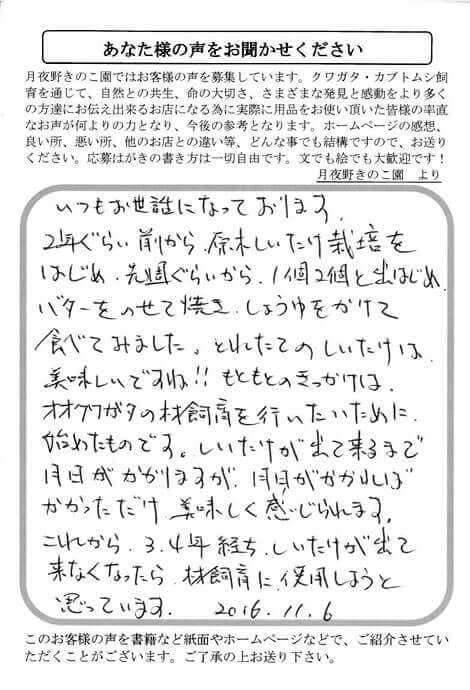 あなた様の声をお聞かせください
月夜野きのこ園ではお客様の声を募集しています。クワガタ・カブトムシ飼
育を通じて、自然との共生、命の大切さ、さまざまな発見と感動をより多く
の方達にお伝え出来るお店になる為に実際に用品をお使い頂いた皆様の率直
なお声が何よりの力となり、今後の参考となります。ホームページの感想、
良い所、悪い所、他のお店との違い等、どんな事でも結構ですので、お送り
ください。応募はがきの書き方は一切自由です。文でも絵でも大歓迎です！
月夜野きのこ園　より
いつもお世話になっております。
2年ぐらい前から、原木しいたけ栽培を
はじめ、先週ぐらいから、1個2個と出はじめ、
バターをのせて焼き、しょうゆをかけて
食べてみました。とれたてのしいたけは、
美味しいですね!! もともとのきっかけは、
オオクワガタの材飼育を行いたいために、
始めたものです。しいたけが出て来るまで
月日がかかりますが、月日がかかれば
かかっただけ、美味しく感じられます。
これから、3、4年経ち、しいたけが出て
来なくなったら、材飼育に使用しようと
思っています。 2016.11.6
このお客様の声を書籍など紙面やホームページなどで、ご紹介させてい
ただくことがございます。ご了承の上お送り下さい。